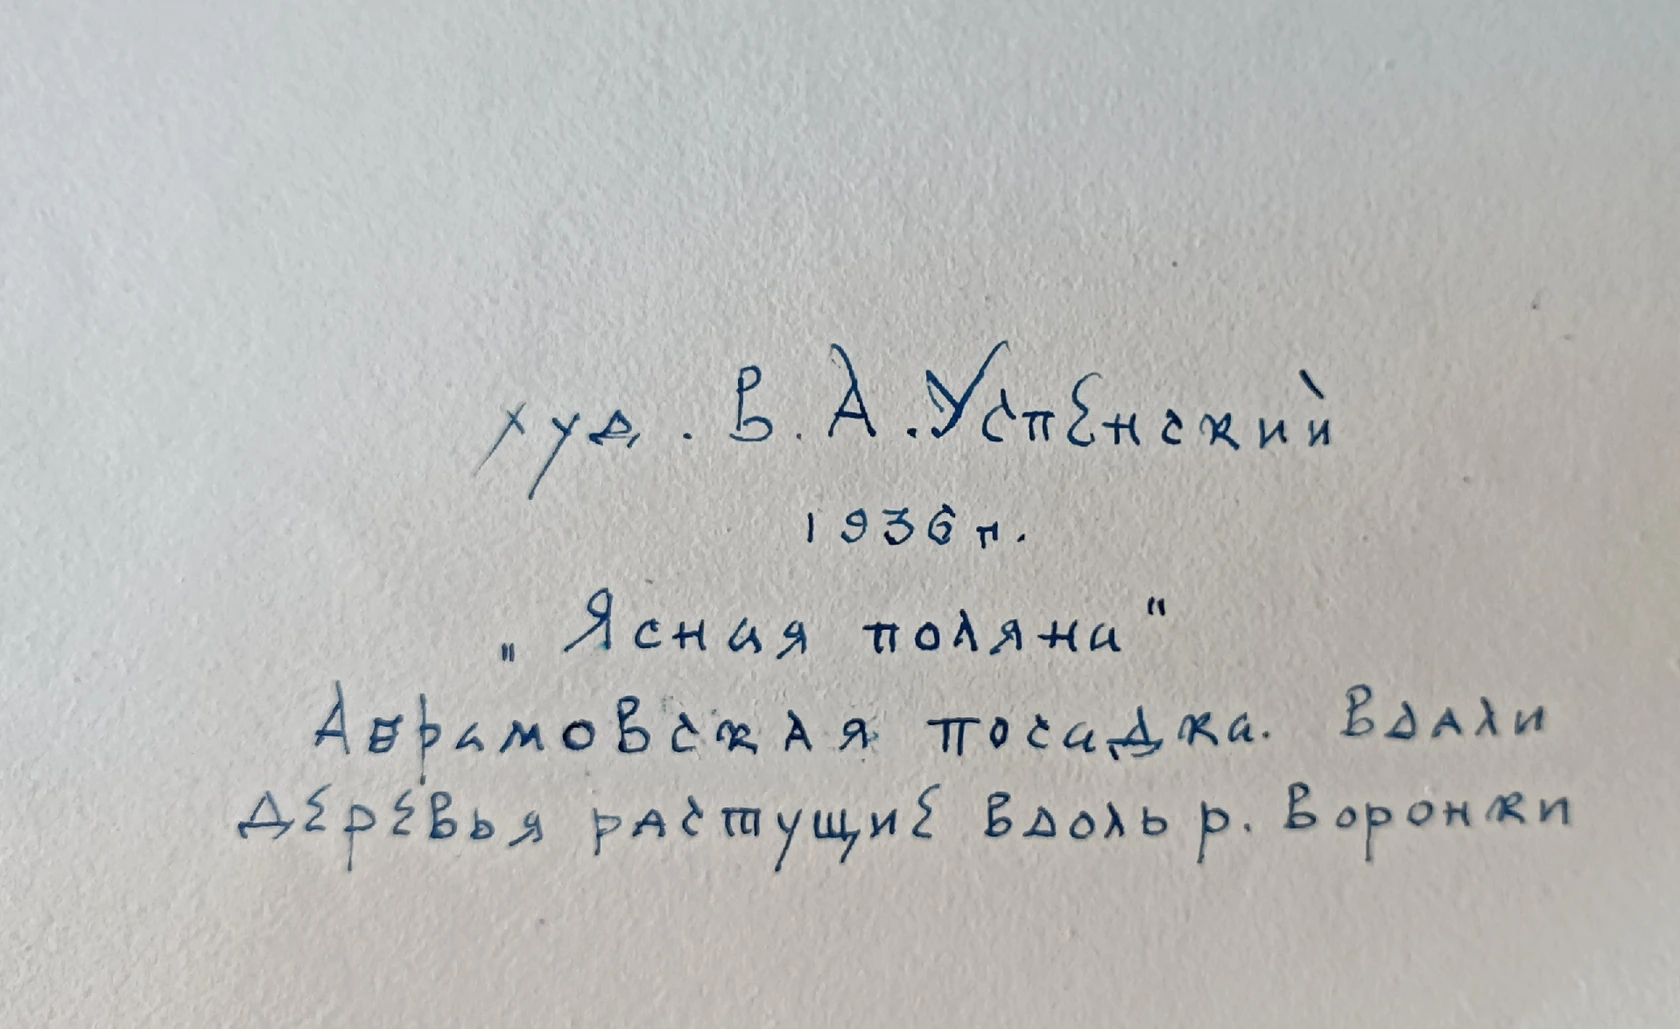 худ. В. А. Успенский
1936 г.
„Ясная поляна"
Абрамовская посадка. Вдали
деревья растущие вдоль р. Воронки